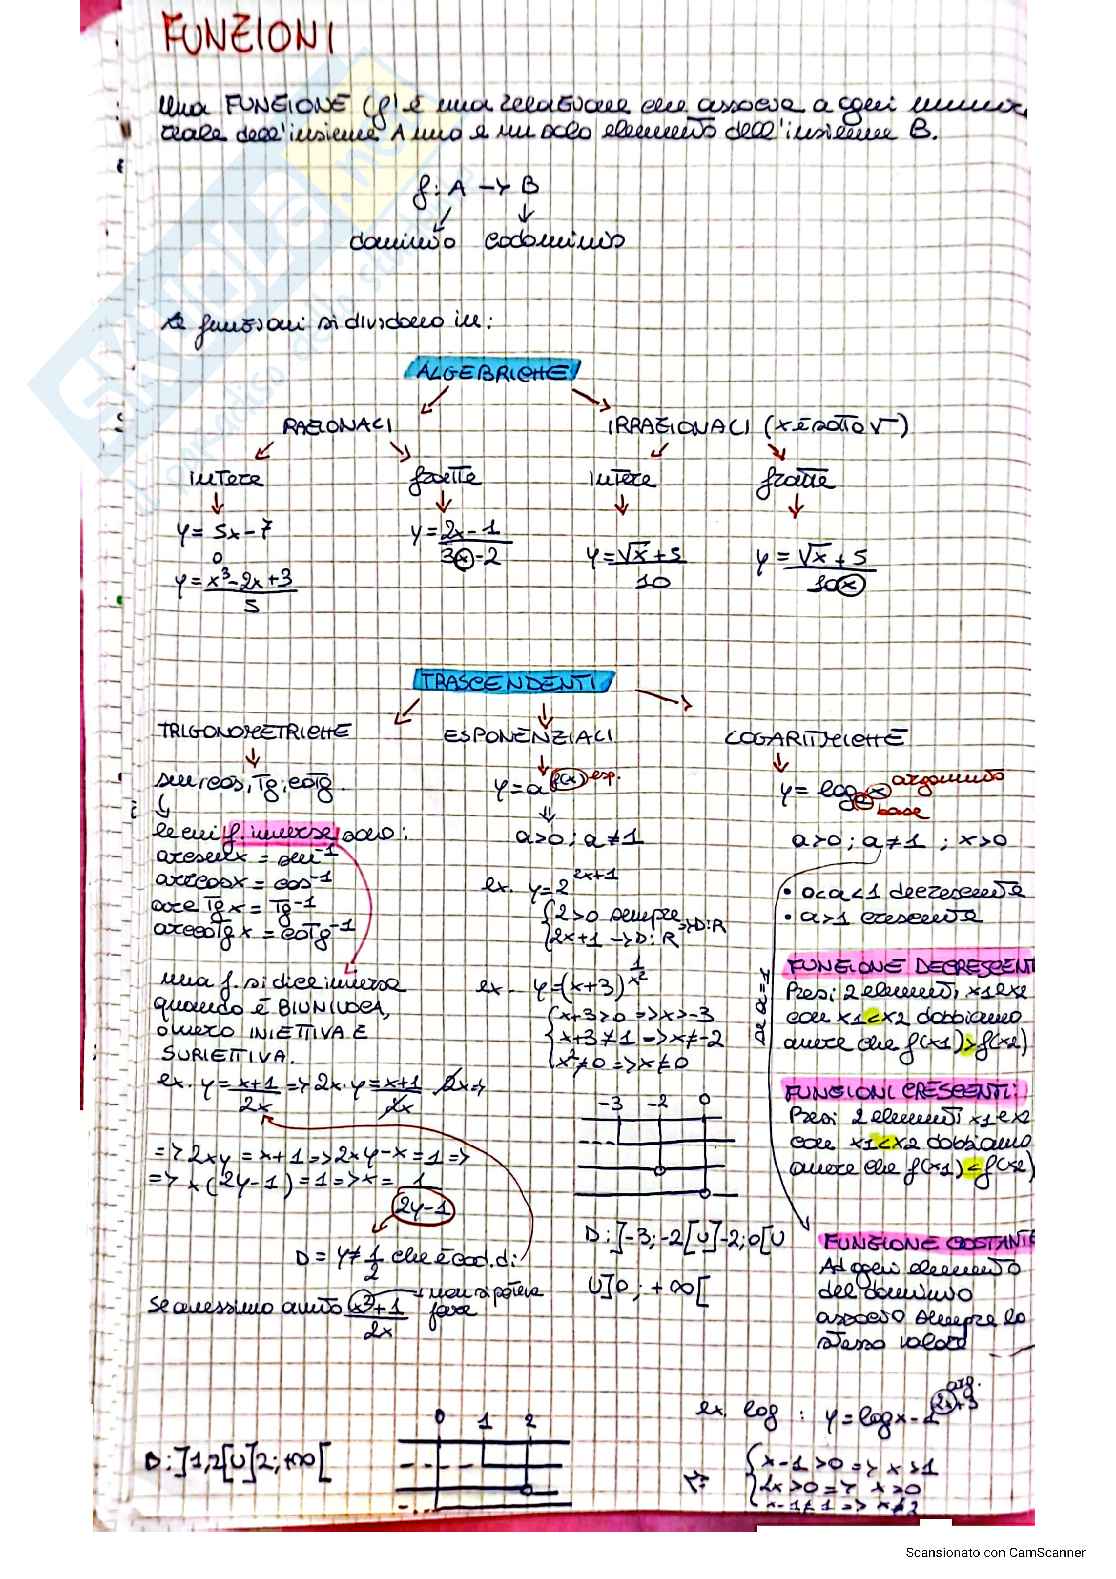 FUNZIONI
Una FUNZIONE (f) è una relazione che associa a ogni
reale dell'insieme A uno e un solo elemento dell'insieme B.
f: A → B
dominio codominio
Le funzioni si dividono in:
ALGEBRICHE
RAZIONALI IRRAZIONALI (x è sotto √)
intere fratte intere fratte
y = 5x-7
o
y = x³-2x+3 / 5
y = 2x-1 / 3x-2
y = √x+5 / 10
y = √x+5 / 10x
TRASCENDENTI
TRIGONOMETRICHE
sen, cos, Tg, coTg.
le cui f. inverse sono:
arcsenx = sen⁻¹
arccosx = cos⁻¹
arcTgx = Tg⁻¹
arccoTgx = coTg⁻¹
una f. si dice inversa
quando è BIUNIVOCA,
ovvero INIETTIVA E
SURIETTIVA.
ex. y = x+1 / 2x => 2x·y = x+1 / 2x · 2x =>
=> 2xy = x+1 => 2xy-x = 1 =>
=> x(2y-1) = 1 => x = 1 / 2y-1
D = y ≠ 1/2 che è cod. di
Se avessimo avuto x²+1 / 2x → non si poteva fare
ESPONENZIALI
y = a^f(x) esp.
a>0; a≠1
ex. y = 2^2x+1
{2>0 sempre
{2x+1 → D: R
=> D: R
ex. y = (x+3)^1/x²
{x+3>0 => x>-3
{x+3≠1 => x≠-2
{x²≠0 => x≠0
-3 -2 0
D: ]-3;-2[U]-2;0[U
U]0; +∞[
LOGARITMICHE
y = log a x argomento
base
a>0; a≠1; x>0
• 0<a<1 decrescente
• a>1 crescente
se a=1
FUNZIONE DECRESCENT
Presi 2 elementi x1 e x2
con x1<x2 dobbiamo
avere che f(x1)>f(x2)
FUNZIONI CRESCENTI:
Presi 2 elementi x1 e x2
con x1<x2 dobbiamo
avere che f(x1)<f(x2)
FUNZIONE COSTANTE
Ad ogni elemento
del dominio
associo sempre lo
stesso valore
ex. log: y = log x-1 2x+3
arg.
{x-1>0 => x>1
{2x>0 => x>0
{x-1≠1 => x≠2
0 1 2
D: ]1;2[U]2;+∞[
SKUOLA.net
Scansionato con CamScanner